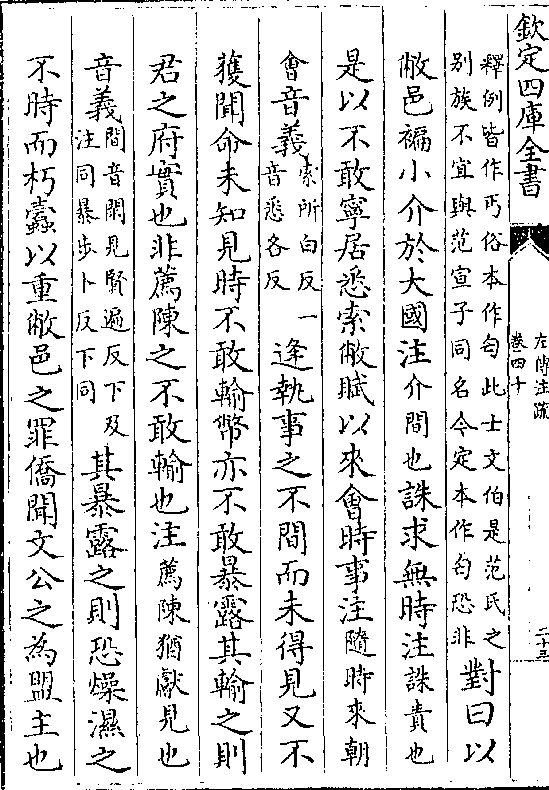 欽定四庫全書
左傳注疏
卷四十
二十三
釋例皆作丐俗本作匄此士文伯是范氏之
别族不宜與范宣子同名今定本作匄恐非
對曰以
敝邑褊小介於大國注介間也誅求無時注誅責也
是以不敢寧居悉索敝賦以來會時事注隨時來朝
會音義索所白反一
音悉各反
逢執事之不間而未得見又不
獲聞命未知見時不敢輸幣亦不敢暴露其輸之則
君之府實也非薦陳之不敢輸也注薦陳猶獻見也
音義間音閑見賢遍反下及
注同暴步卜反下同
其暴露之則恐燥濕之
不時而朽蠹以重敝邑之罪僑聞文公之為盟主也